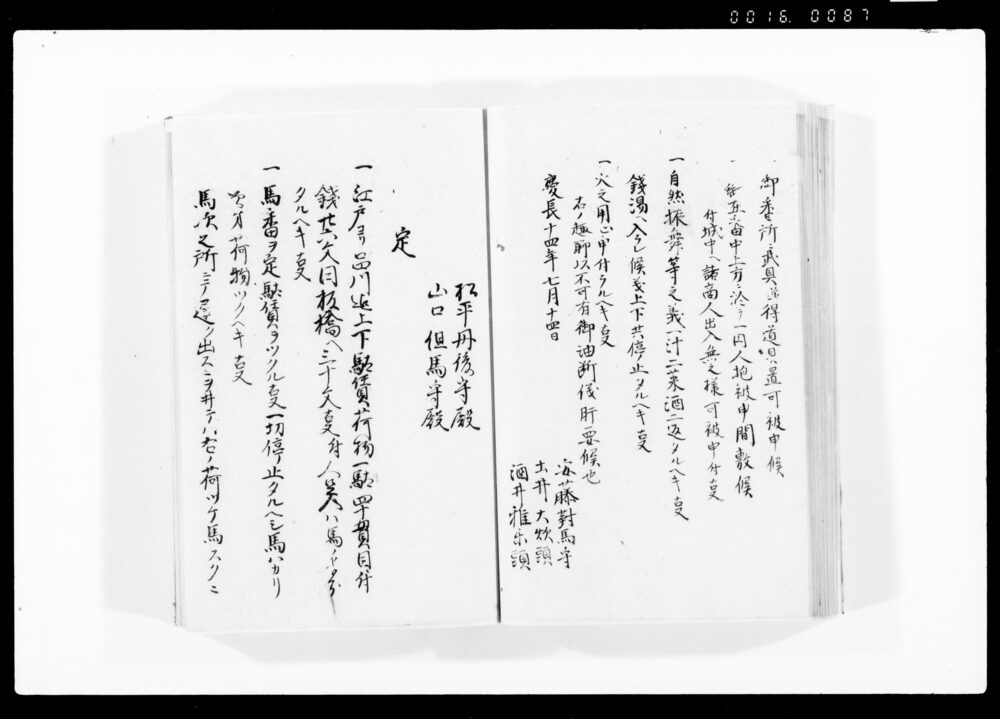 0016.0087
御番所武具并得道具置可被申候
一 番中上方ニ於テ一円人抱被申間敷候
付城中ヘ諸商人出入無之様可被申付事
一 自然振舞等之義一汁二菜酒二返タルヘキ事
銭湯ヘ入ラレ候義上下共停止タルヘキ事
一 火之用心申付ラルヘキ事
右ノ趣聊以不可有御油断儀肝要候也
慶長十四年七月十四日
安藤對馬守
土井大炊頭
酒井雅楽頭
松平丹後守殿
山口但馬守殿
定
一 江戸ヨリ品川迄上下駄賃荷物一駄四十貫目付
銭廿六文同板橋ヘ三十文事付人ハ馬ノ半分
タルヘキ事
一 馬番ヲ定駄賃ヲツクル事一切停止タルヘシ馬ハカリ
次第荷物ツクヘキ事
馬次之所ニテ出ス荷ツケ馬スクニ